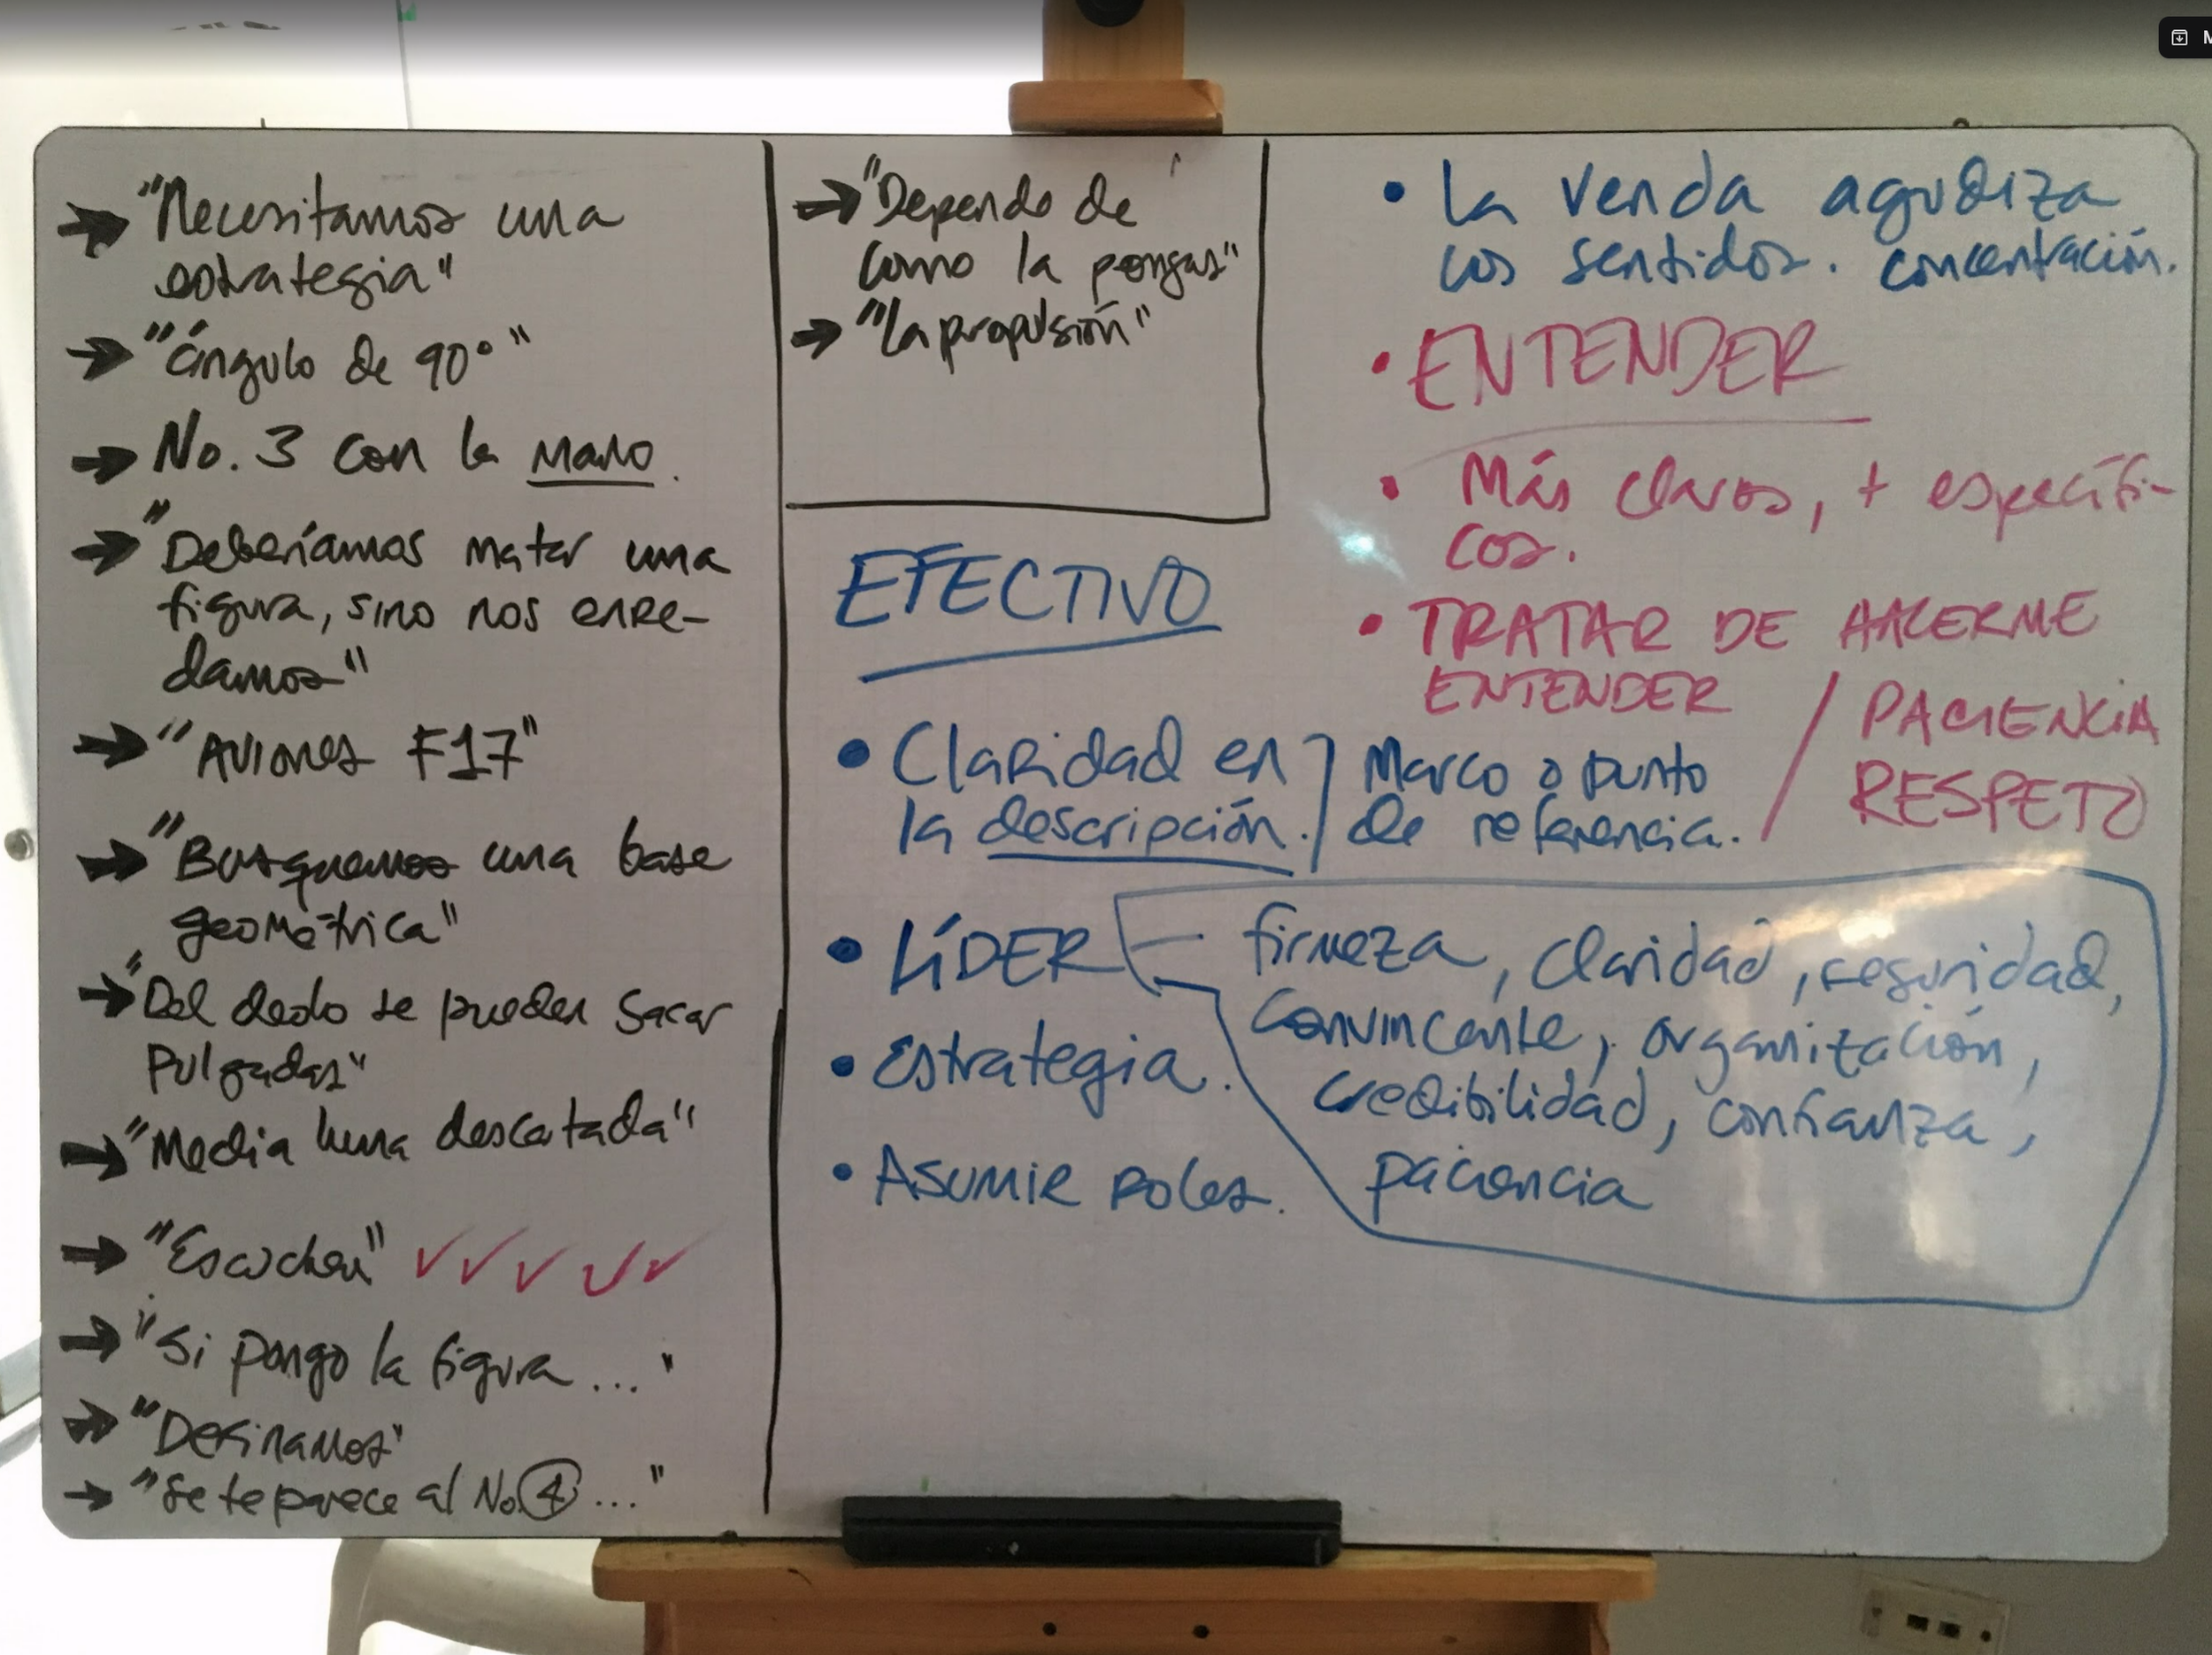 → "Necesitamos una
estrategia"
→ "ángulo de 90°"
→ No. 3 con la mano.
→ "Deberíamos matar una
figura, sino nos enre-
damos"
→ "Aviones F17"
→ "Busquemos una base
geométrica"
→ "Del dedo se pueden sacar
Pulgadas"
→ "Media luna descatada"
→ "Escuchen" ✓✓✓✓✓
→ "Si pongo la figura..."
→ "Definamos"
→ "Se te parece al No. 4 ..."
→ "Depende de
como la pongas"
→ "La propulsión"
EFECTIVO
• Claridad en
la descripción.
Marco o punto
de referencia.
• LÍDER
firmeza, claridad, seguridad,
convincente, organización,
credibilidad, confianza,
paciencia
• Estrategia.
• Asumir roles.
• La venda agudiza
los sentidos. concentración.
• ENTENDER
• Más claros, + específi-
cos.
• TRATAR DE HACERME
ENTENDER / PACIENCIA
RESPETO
M